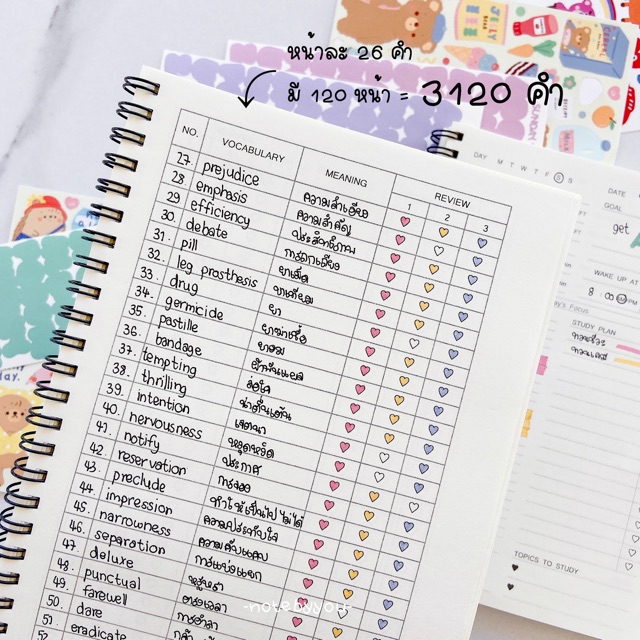 หน้าละ 26 คำ
มี 120 หน้า = 3120 คำ
NO. VOCABULARY MEANING REVIEW
1 2 3
27. prejudice ความลำเอียง
28. emphasis ความสำคัญ
29 efficiency ประสิทธิภาพ
30. debate การถกเถียง
31. pill ยาเม็ด
32. leg prosthesis ขาเทียม
33. drug ยา
34. germicide ยาฆ่าเชื้อ
35. pastille ยาอม
36. bandage ผ้าพันแผล
37. tempting ล่อใจ
38. thrilling น่าตื่นเต้น
39. intention เจตนา
40. nervousness หงุดหงิด
41. notify ประกาศ
42. reservation การจอง
43. preclude ทำให้เป็นไปไม่ได้
44. impression ความประทับใจ
45. narrowness ความคับแคบ
46. separation การแบ่งแยก
47. deluxe หรูหรา
48. punctual ตรงเวลา
49. farewell การอำลา
50. dare กล้า
51. eradicate
52.
-notebyyou-
DAY M T W T F S S
DATE
GOAL
get
WAKE UP AT
8 : 00
Today's Focus
STUDY PLAN
TOPICS TO STUDY
JELLY
BEAR
SUNDAY
MILK
day.